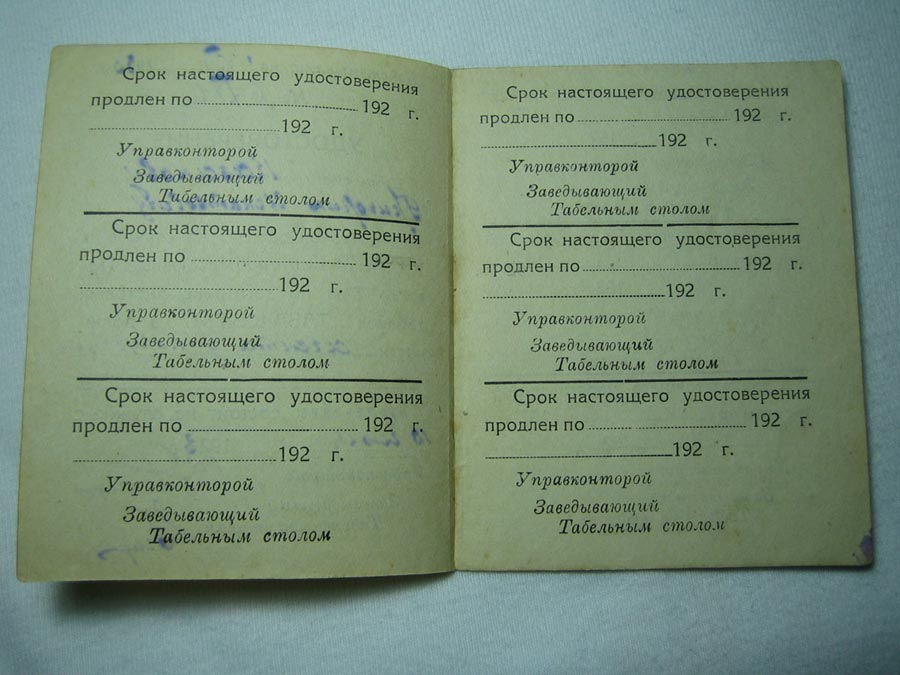 Срок настоящего удостоверения
продлен по ........................ 192 г.
........................ 192 г.
Управконторой
Заведывающий
Табельным столом
Срок настоящего удостоверения
продлен по ........................ 192 г.
........................ 192 г.
Управконторой
Заведывающий
Табельным столом
Срок настоящего удостоверения
продлен по ........................ 192 г.
........................ 192 г.
Управконторой
Заведывающий
Табельным столом
Срок настоящего удостоверения
продлен по ........................ 192 г.
........................ 192 г.
Управконторой
Заведывающий
Табельным столом
Срок настоящего удостоверения
продлен по ........................ 192 г.
........................ 192 г.
Управконторой
Заведывающий
Табельным столом
Срок настоящего удостоверения
продлен по ........................ 192 г.
........................ 192 г.
Управконторой
Заведывающий
Табельным столом